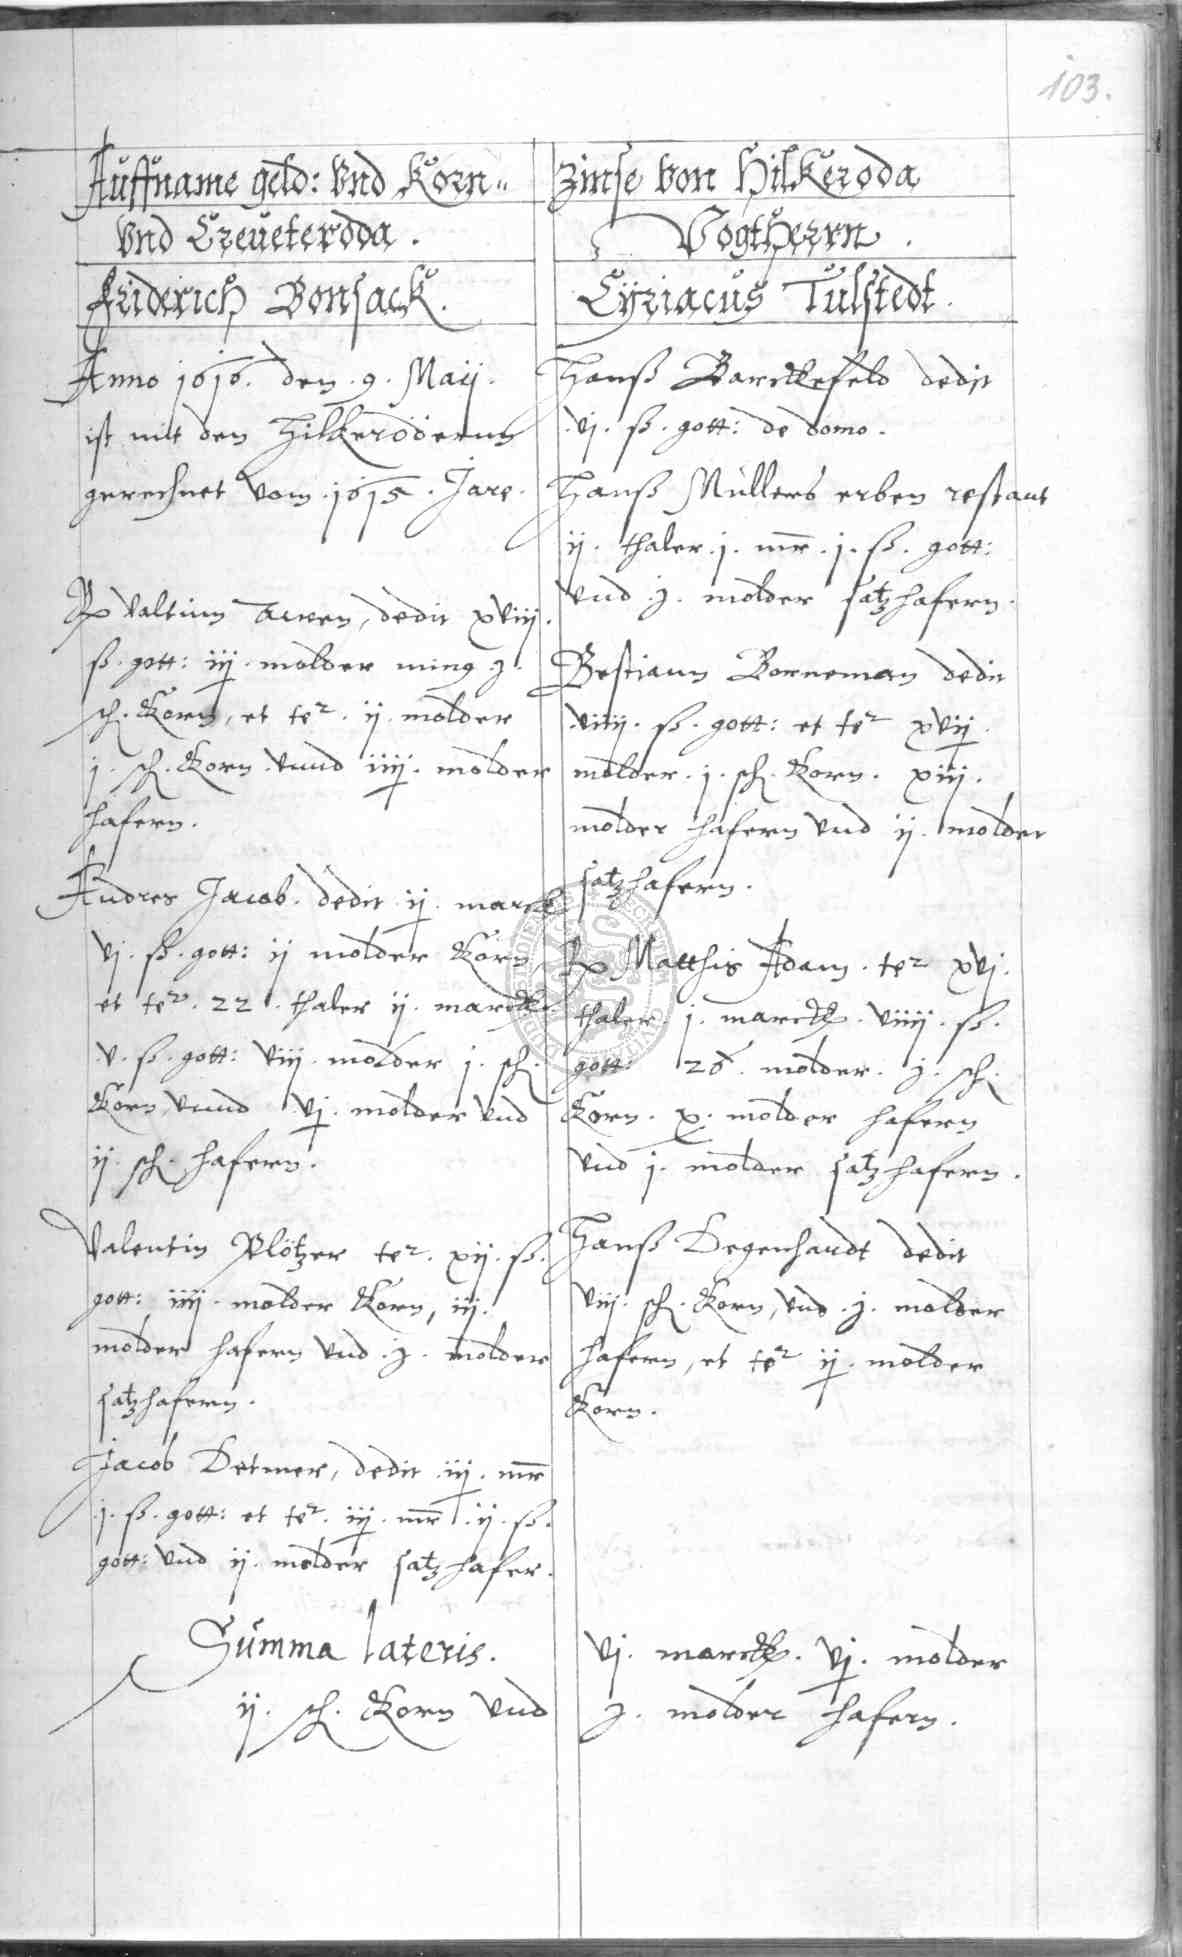 103.
Auffname geld: vnd Korn=
Zinse von Hilkeroda
vnd Creueterodа.
Vogtherrn.
Friderich Bonsack.
Cyriacus Tulstedt.
Anno 1616. den. 9. Maij.
ist mit den Hilkeröderun
gerechnet vom. 1615. Jare.
Valtinn, dedit xviij.
ß. gott: iij. molder
sch. Korn, et ter. ij. molder
j. sch. Korn vnnd iiij. molder
hafern.
Andres Jacob. dedit ij. marck
vj. ß. gott: ij molder Korn
et ter. 22. thaler ij. marck
v. ß. gott: viij. molder j. sch.
Korn vnnd vj. molder vnd
ij. sch. hafern.
Valentin Plötzer ter. xij. ß.
gott: iiij. molder Korn, iij.
molder hafern vnd j. molder
satzhafern.
Jacob Detmer, dedit iij. mr
j. ß. gott: et ter. iij. mr. ij. ß.
gott: vnd ij. molder satzhafer.
Hanß Barckefeld dedit
vj. ß. gott: de domo.
Hanß Müllers erben restant
ij. thaler. j. mr. j. ß. gott:
vnd j. molder satzhafern.
Bestiann Borneman dedit
viiij. ß. gott: et ter xvij.
molder. j. sch. Korn. xiij.
molder hafern vnd ij. molder
satzhafern.
Matthis Adam. ter xvj.
thaler. j. marck. viiij. ß.
gott: 26. molder. j. sch.
Korn. x. molder hafern
vnd j. molder satzhafern.
Hanß Degenhardt dedit
viij. sch. Korn, vnd. j. molder
hafern, et ter ij. molder
Korn.
Summa lateris.
vj. marck. vj. molder
ij. sch. Korn vnd
j. molder hafern.